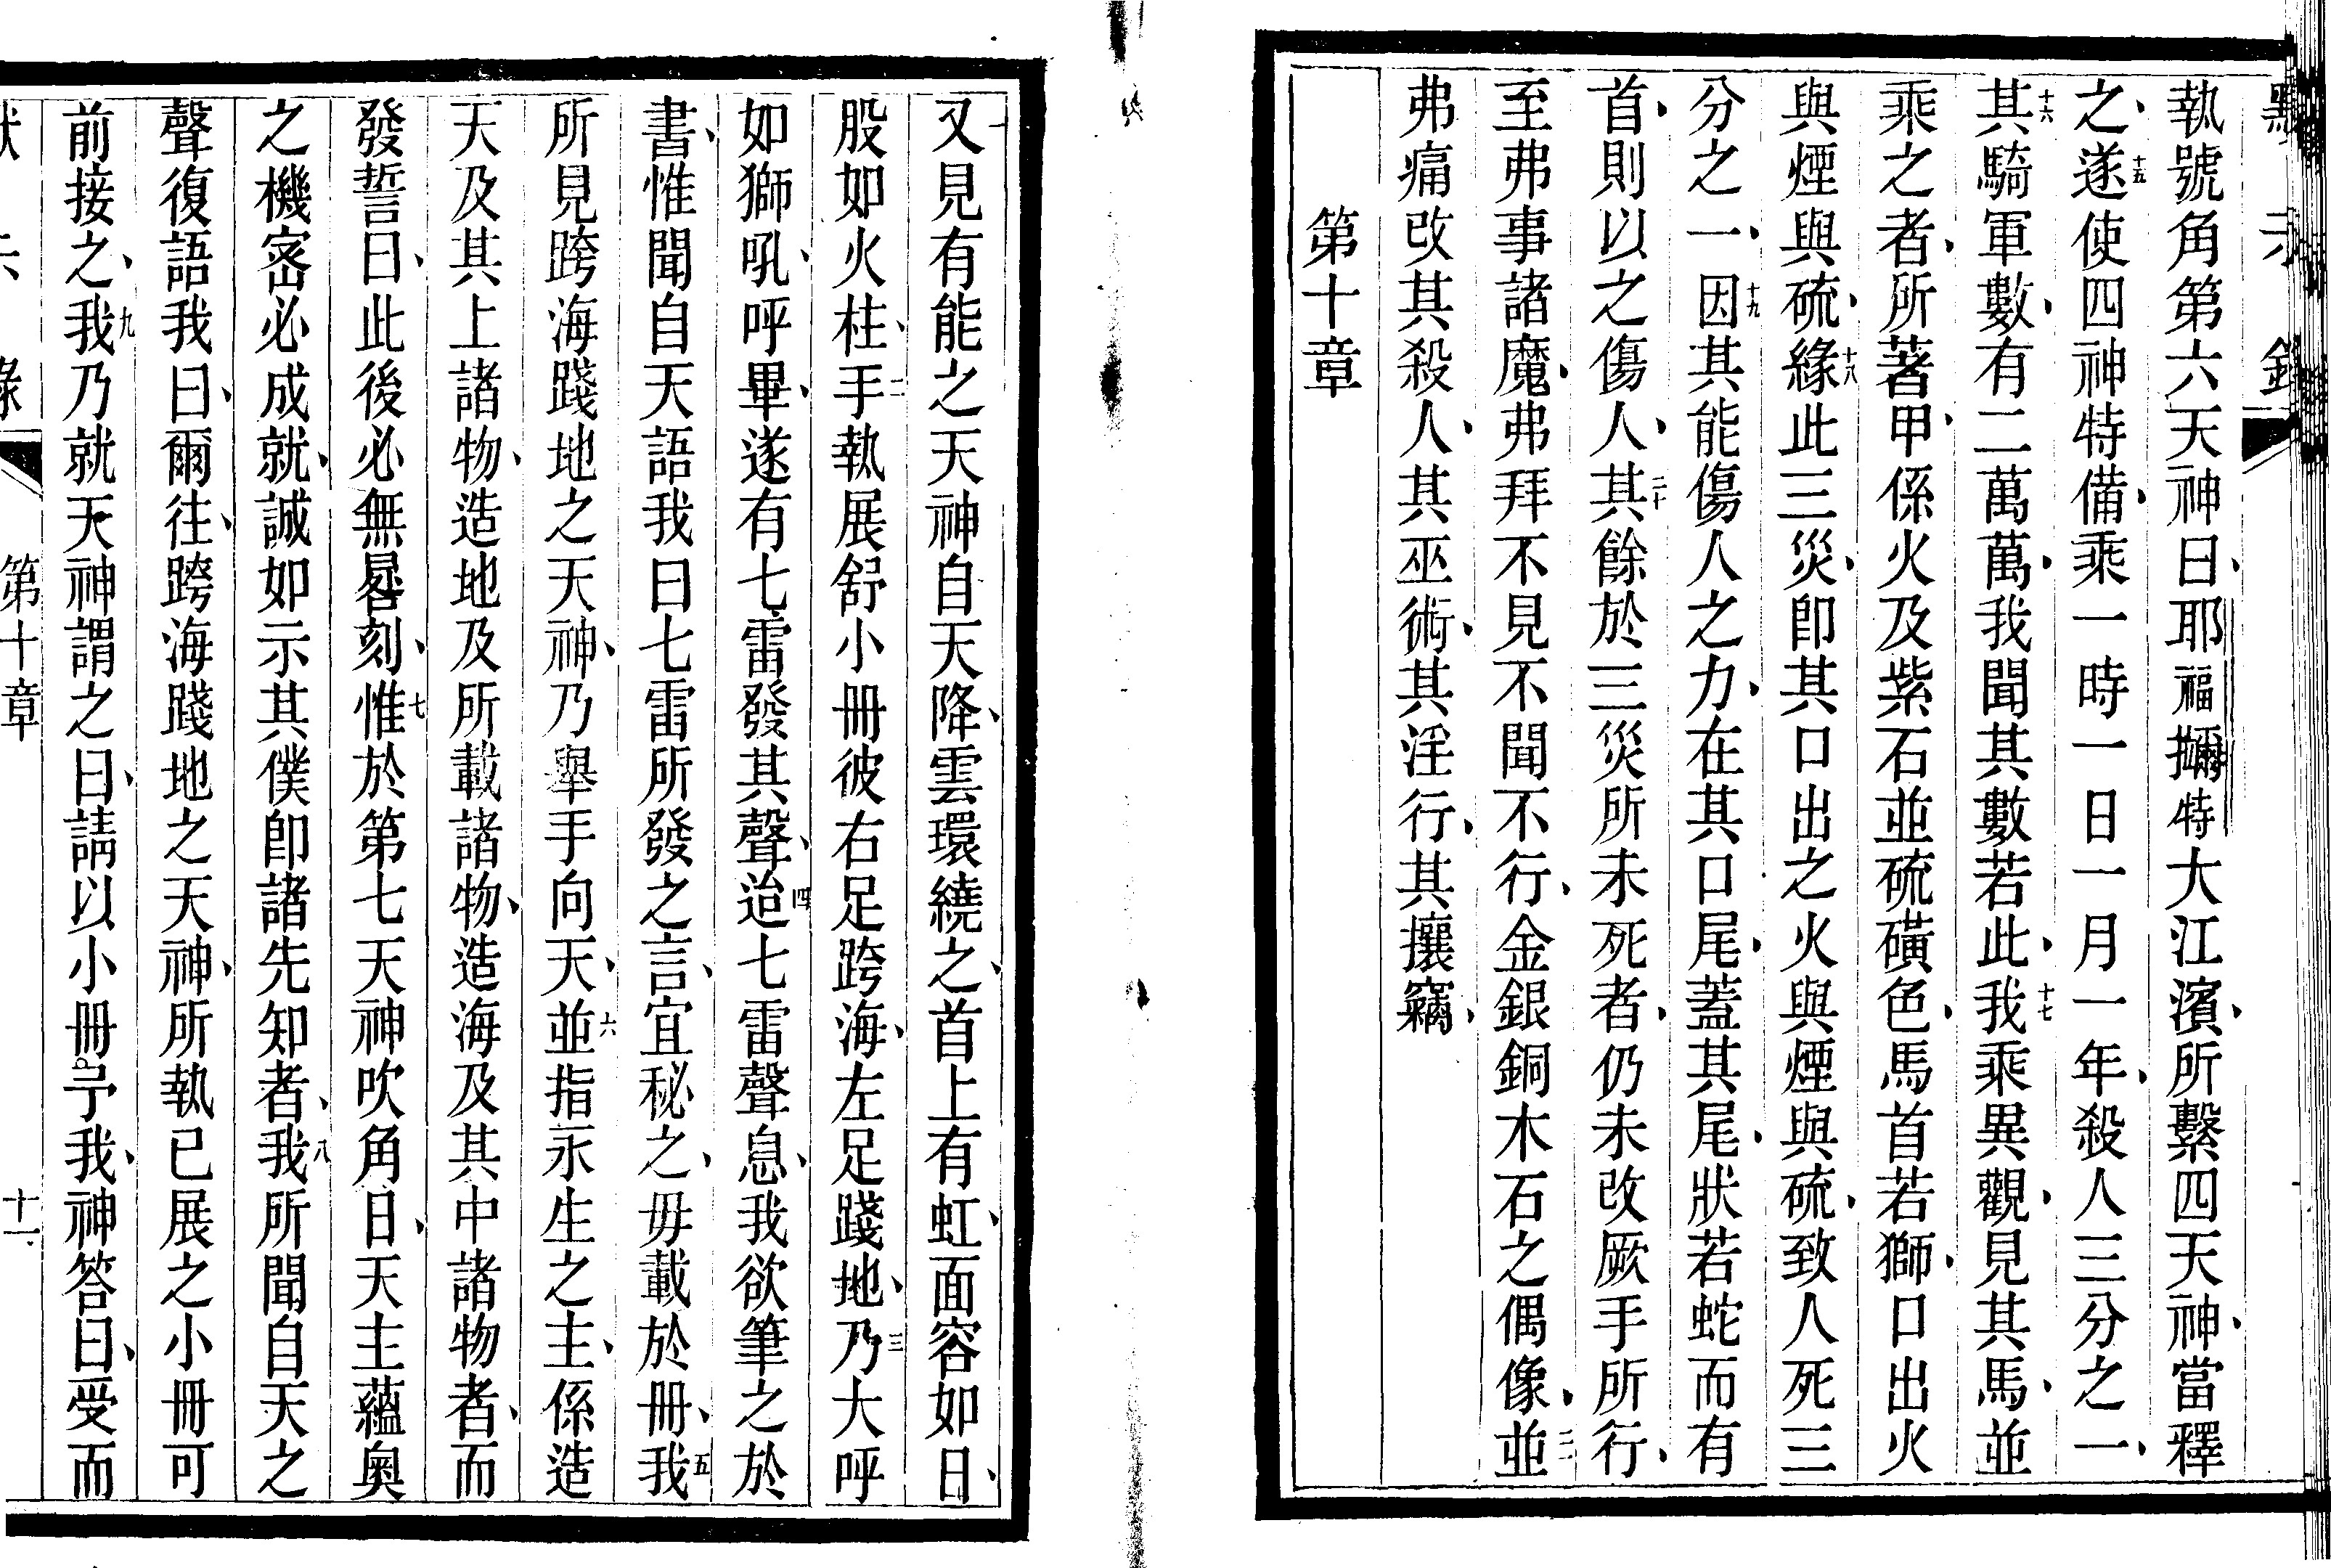 默示錄
執號角第六天神曰、耶福擟特大江濱、所繫四天神、當釋
之、十五遂使四神特備、乘一時一日一月一年、殺人三分之一、
十六其騎軍數、有二萬萬、我聞其數若此、十七我乘異觀、見其馬、並
乘之者、所著甲、係火及紫石並硫磺色、馬首若獅、口出火
與煙與硫、十八緣此三災、卽其口出之火與煙與硫、致人死三
分之一、十九因其能傷人之力、在其口尾、蓋其尾、狀若蛇而有
首、則以之傷人、二十其餘於三災所未死者、仍未改厥手所行、
至弗事諸魔、弗拜不見不聞不行、金銀銅木石之偶像、二一並
弗痛改其殺人、其巫術、其淫行、其攘竊、
第十章
一又見有能之天神自天降、雲環繞之、首上有虹、面容如日、
股如火柱、二手執展舒小冊彼右足跨海、左足踐地、三乃大呼
如獅吼、呼畢、遂有七雷發其聲、四迨七雷聲息、我欲筆之於
書、惟聞自天語我曰七雷所發之言、宜秘之、毋載於冊、五我
所見跨海踐地之天神、乃舉手向天、六並指永生之主、係造
天及其上諸物、造地及所載諸物、造海及其中諸物者、而
發誓曰、此後必無晷刻、七惟於第七天神吹角日、天主蘊奧
之機密必成就、誠如示其僕卽諸先知者、八我所聞自天之
聲復語我曰、爾往、跨海踐地之天神、所執已展之小冊可
前接之、九我乃就天神謂之曰、請以小冊予我、神答曰、受而
默示錄 第十章 十一